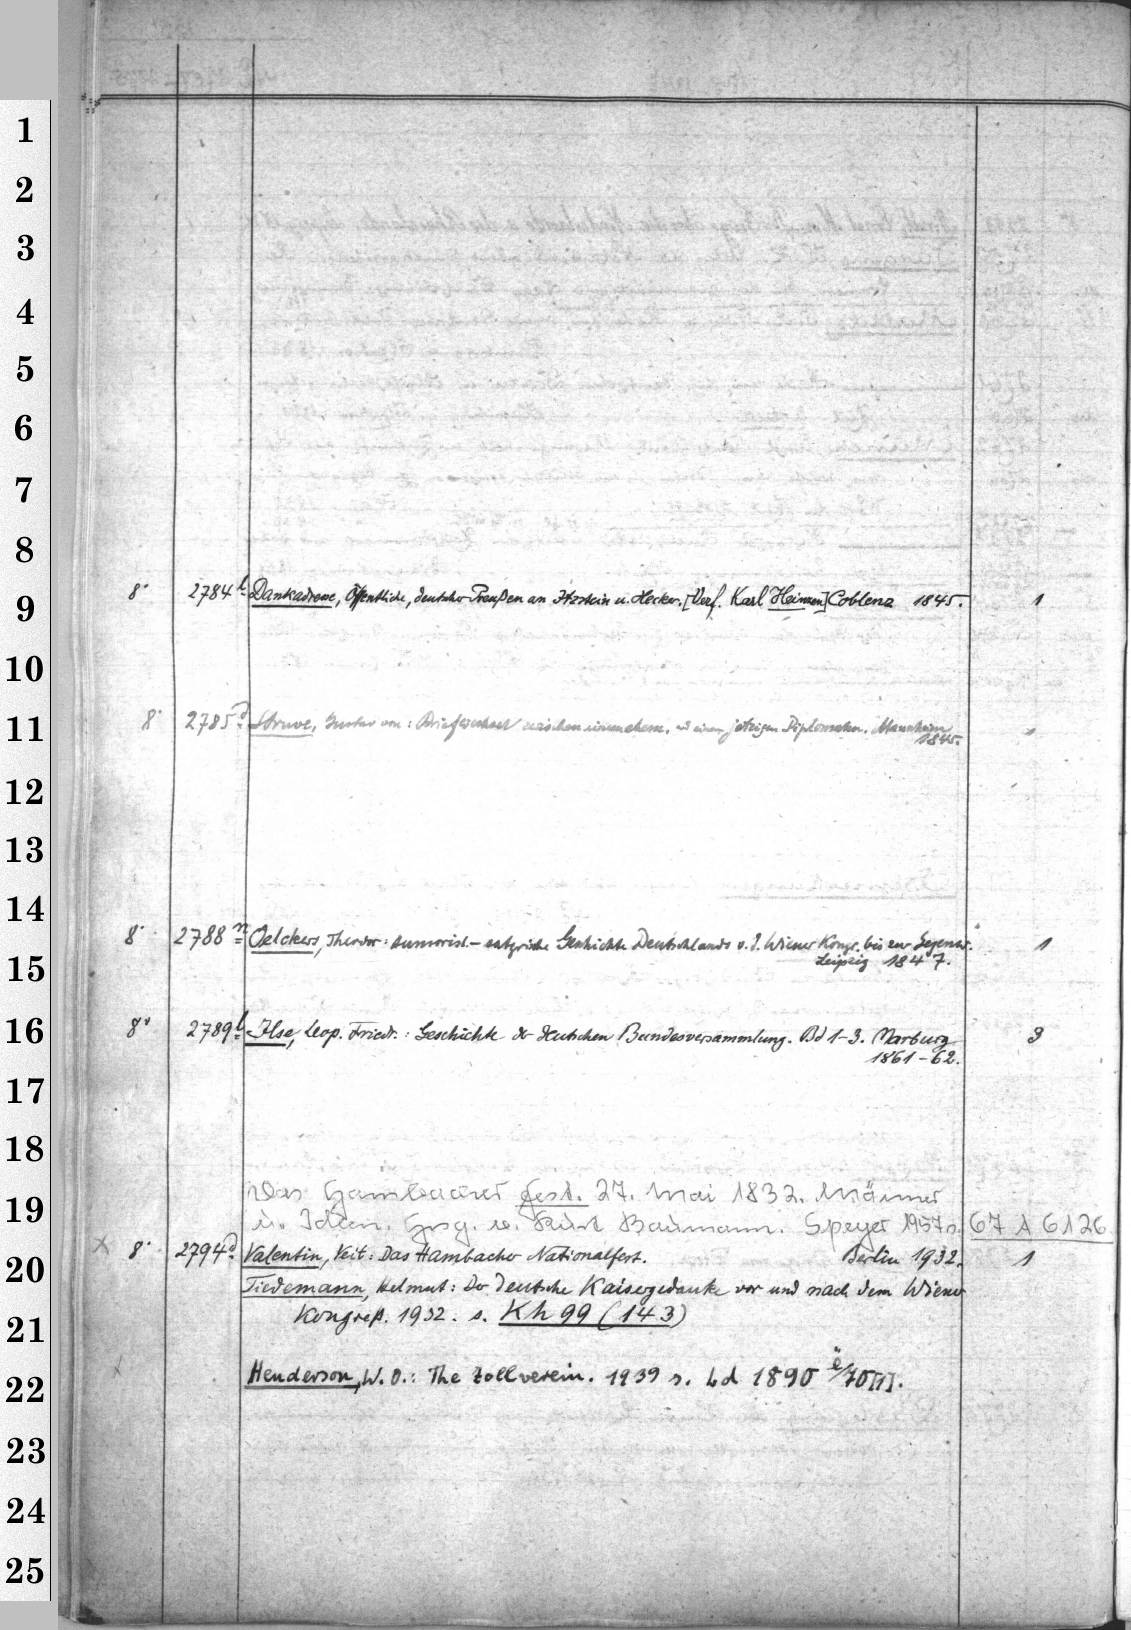 1
2
3
4
5
6
7
8
8° 2784 b Dankadresse, Öffentliche, deutscher Preußen an Itzstein u. Hecker. [Verf. Karl Heinzen] Coblenz 1845. 1
9
10
8° 2785 Struve, Gustav von: Briefwechsel zwischen einem ehem. und einem jetzigen Diplomaten. Mannheim 1
11
1845.
12
13
14
8° 2788 n Oelckers, Theodor: Humorist.-satyrische Geschichte Deutschlands v. d. Wiener Kongr. bis zur Gegenw. 1
Leipzig 1847.
15
16
8° 2789 b Ilse, Leop. Friedr.: Geschichte der deutschen Bundesversammlung. Bd 1-3. Marburg 3
1861-62.
17
18
Das Hambacher Fest. 27. Mai 1832. Männer
19
u. Ideen. Hrsg. v. Kurt Baumann. Speyer 1957 s. 67 A 6126
x 8° 2794 d Valentin, Veit: Das Hambacher Nationalfest. Berlin 1932. 1
20
Tiedemann, Helmut: Der deutsche Kaisergedanke vor und nach dem Wiener
Kongreß. 1932. s. Kh 99 (143)
21
Henderson, W. O.: The Zollverein. 1939 s. Ld 1890 e/70[1].
22
23
24
25